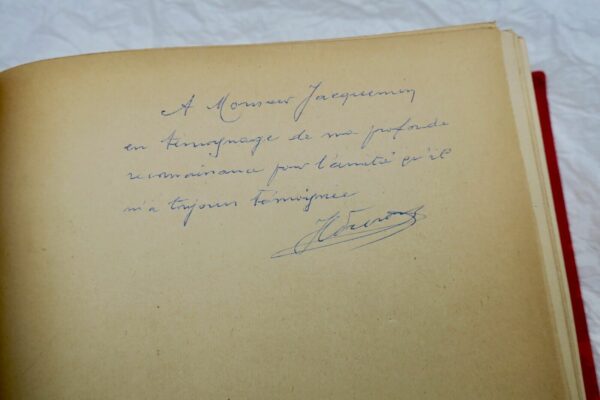 A Monsieur Jacquemin
en témoignage de ma profonde
reconnaissance pour l'amitié qu'il
m'a toujours témoignée